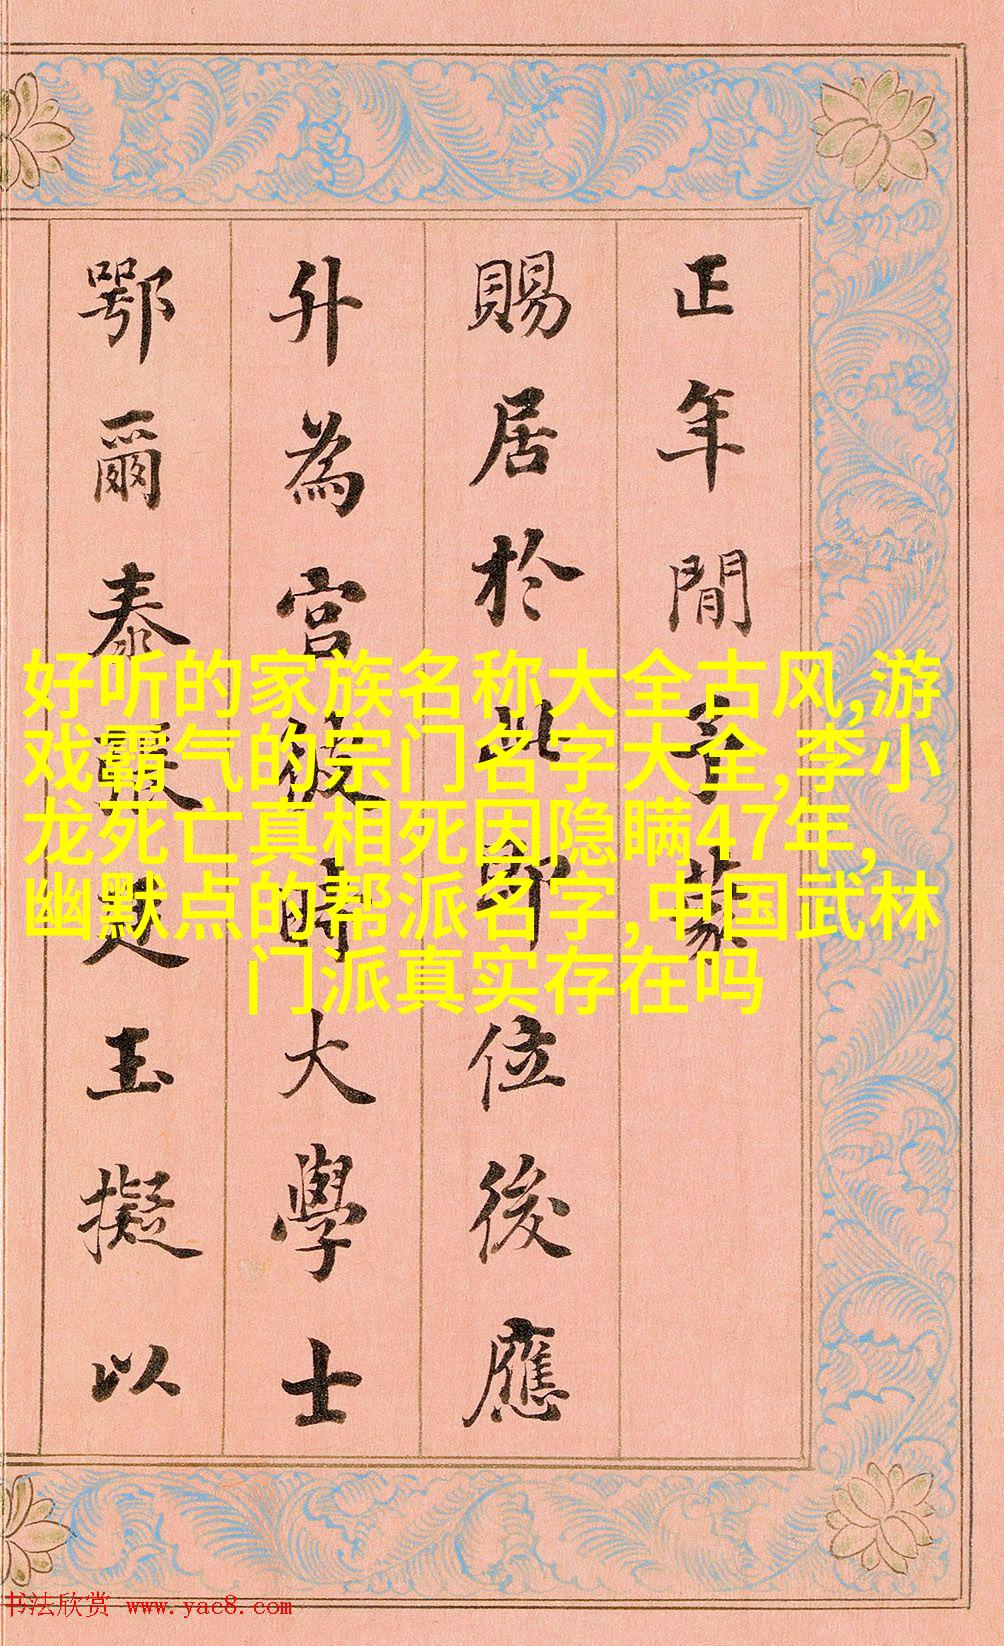 正年間予蒙
賜居於此即位後應
升為宮彼時大學士
鄂爾泰張廷玉擬以
好听的家族名称大全古风,游
戏霸气的宗门名字大全,李小
龙死亡真相死因隐瞒47年,
幽默点的帮派名字,中国武林
门派真实存在吗
书法欣赏 www.yac8.com